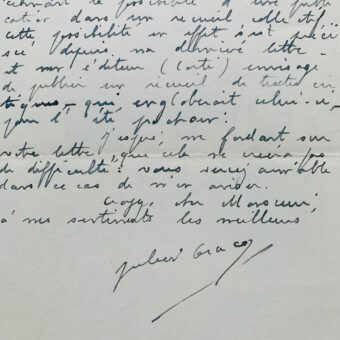 cernant la possibilité d'une publi
cation dans un recueil collectif.
cette possibilité en effet s'est préci
sée depuis ma dernière lettre
et mon l'éditeur (Corti) envisage
de publier un recueil de textes cri
tiques – qui engloberait celui-ci,
pour l'été prochain.
J'espère, me fondant sur
votre lettre, que cela ne créera pas
de difficulté : vous seriez aimable
dans ce cas de m'en aviser.
Croyez, cher Monsieur,
à mes sentiments les meilleurs
Julien Gracq